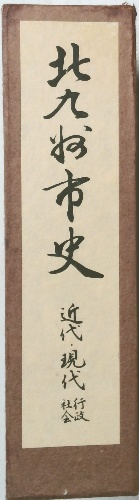 北九州市史
近代・現代
行政
社会